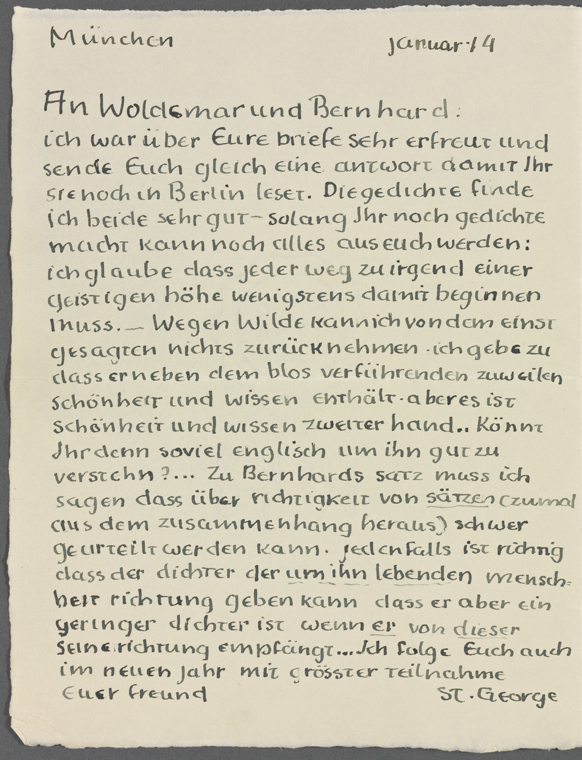 München januar·14
An Woldemar und Bernhard:
ich war über Eure briefe sehr erfreut und
sende Euch gleich eine antwort damit Ihr
sie noch in Berlin leset. Die gedichte finde
ich beide sehr gut – solang Ihr noch gedichte
macht kann noch alles aus euch werden:
ich glaube dass jeder weg zu irgend einer
geistigen höhe wenigstens damit beginnen
muss. — Wegen Wilde kann ich von dem einst
gesagten nichts zurücknehmen · ich gebe zu
dass er neben dem blos verführenden zuweilen
schönheit und wissen enthält · aber es ist
schönheit und wissen zweiter hand.. Könnt
Ihr denn soviel englisch um ihn gut zu
verstehn?... Zu Bernhards satz muss ich
sagen dass über richtigkeit von sätzen (zumal
aus dem zusammenhang heraus) schwer
geurteilt werden kann. jedenfalls ist richtig
dass der dichter der um ihn lebenden mensch-
heit richtung geben kann dass er aber ein
geringer dichter ist wenn er von dieser
seine richtung empfängt... Ich folge Euch auch
im neuen Jahr mit grösster teilnahme
Euer freund St. George